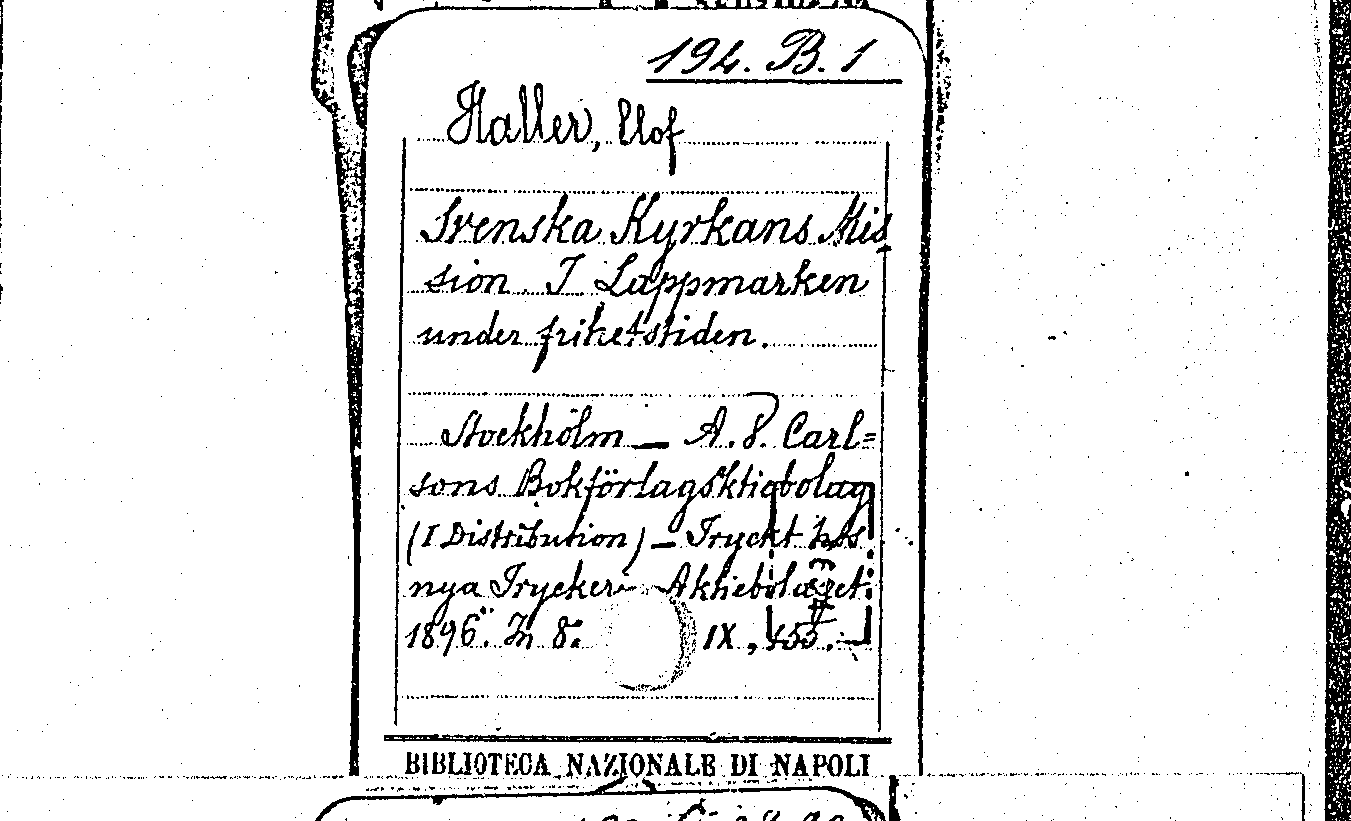 194. B. 1
Haller, Elof
Svenska Kyrkans Mis
sion I Lappmarken
under frihetstiden.
Stockholm — A. V. Carl=
sons Bokförlagsktiebolag
(I Distribution) — Tryckt hos
nya Tryckeri Aktiebolaget
1896. In 8. IX, 155.
BIBLIOTECA NAZIONALE DI NAPOLI